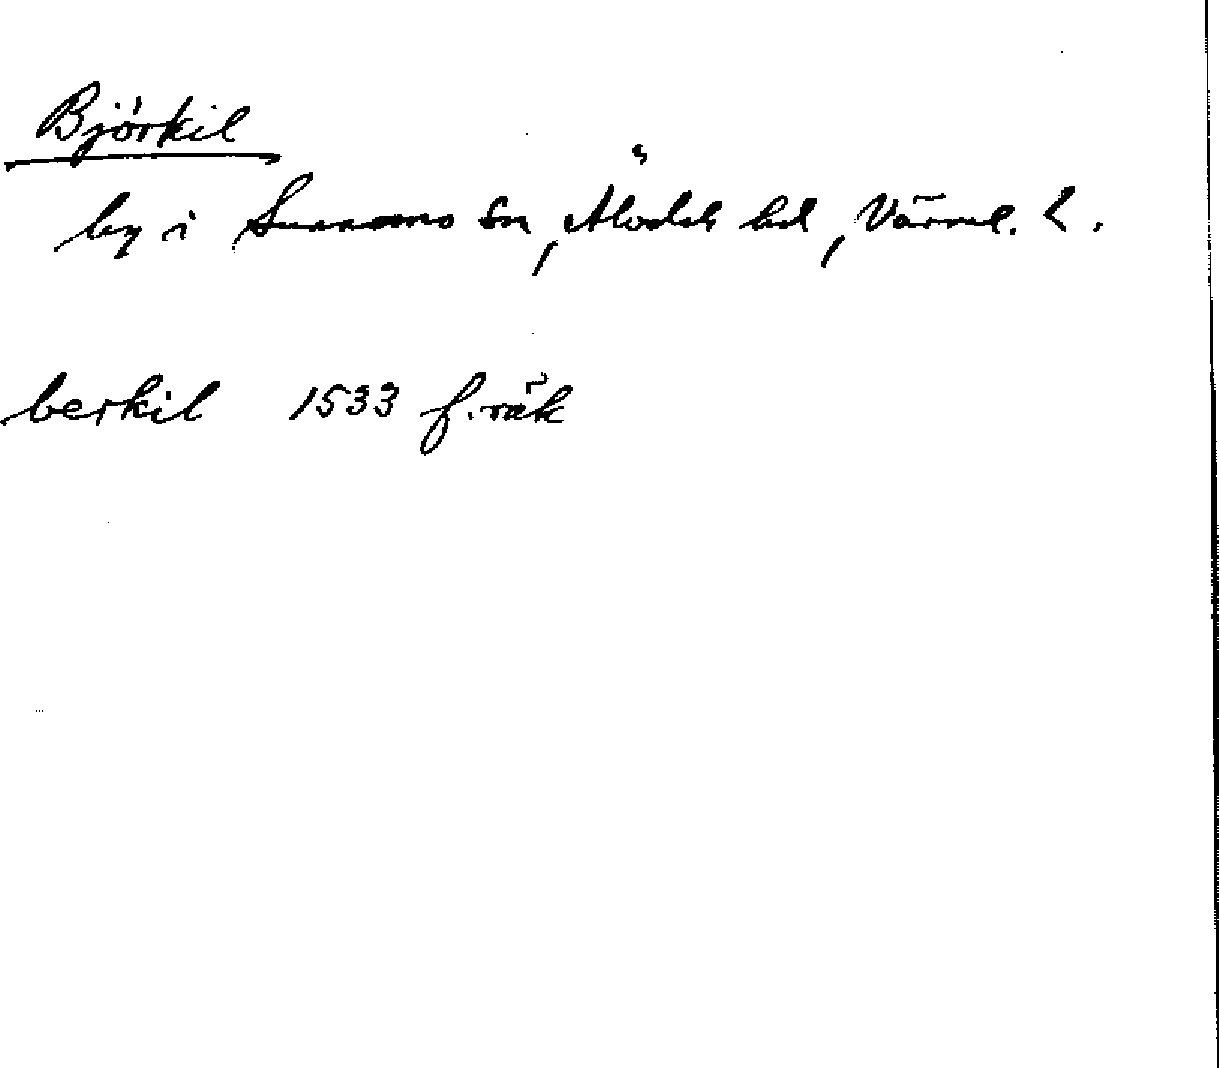 Björkil
by i Sunnemo sn, Älvdals hd, Värml. l.
berkil 1533 f.räk